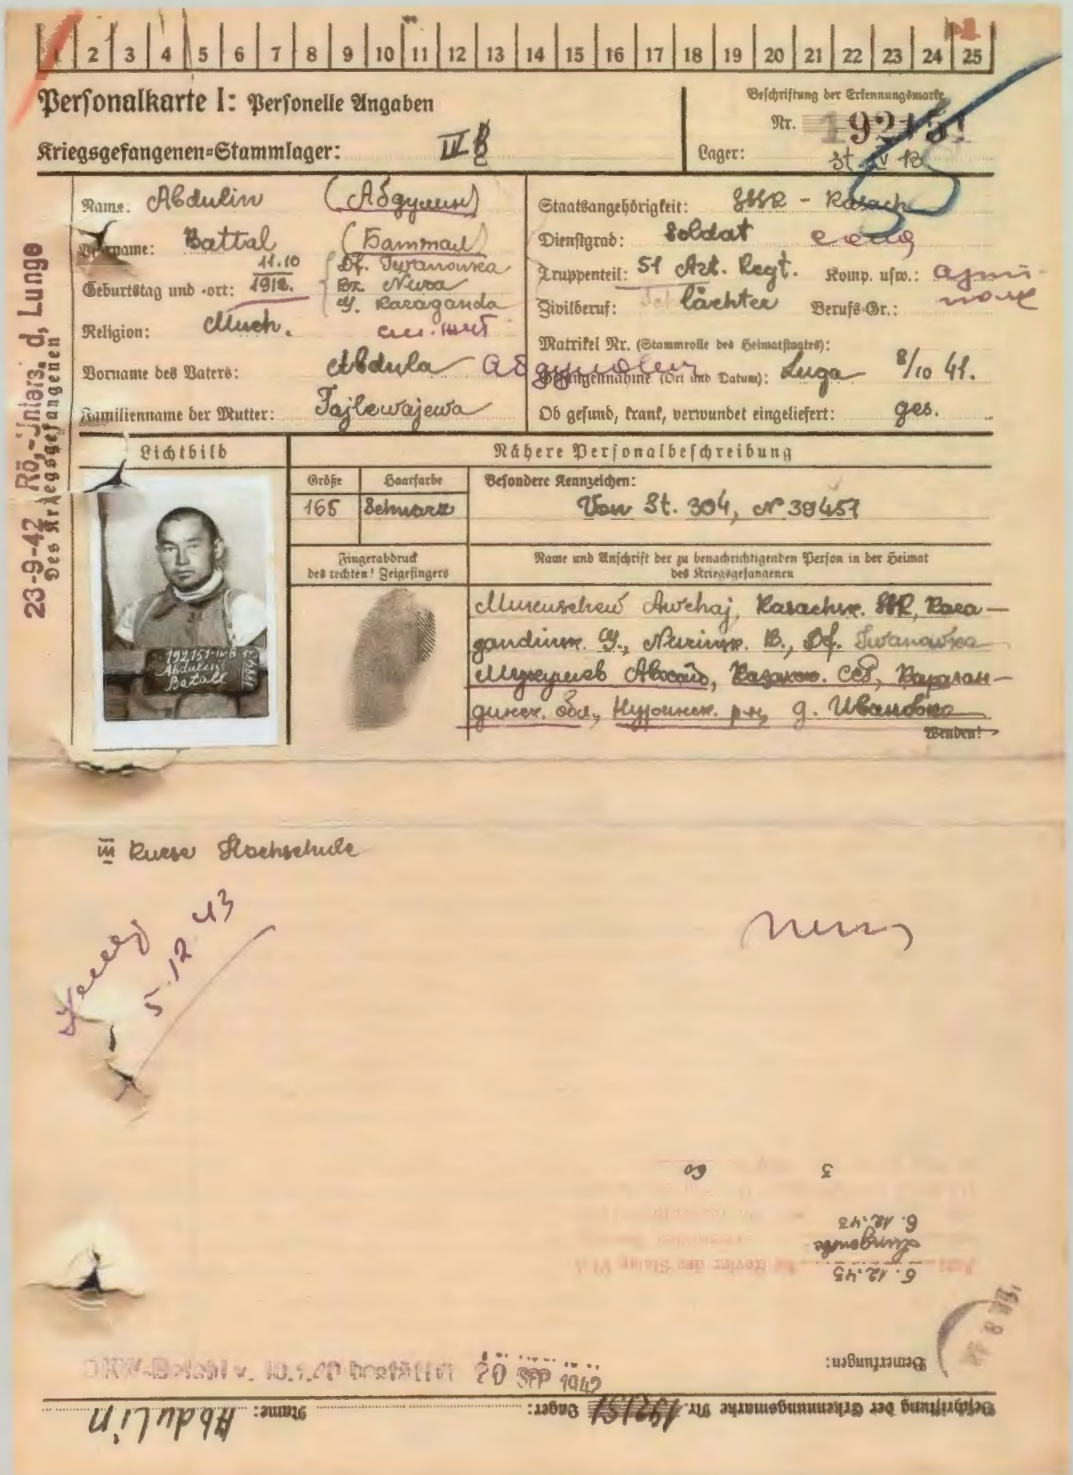 1 2 3 4 5 6 7 8 9 10 11 12 13 14 15 16 17 18 19 20 21 22 23 24 25
Personalkarte I: Personelle Angaben
Kriegsgefangenen=Stammlager: IV B
Beschriftung der Erkennungsmarke
Nr. 192151
Lager: St. IV B
Name: Abdulin (Абдулин)
Vorname: Battal (Баттал)
Geburtstag und -ort: 11.10 1912. Df. Iwanowka
Bz. Nura
G. Karaganda
Religion: Much.
Vorname des Vaters: Abdula
Familienname der Mutter: Tajlewajewa
Staatsangehörigkeit: SSSR - Kasach
Dienstgrad: Soldat солд
Truppenteil: 51 Art. Regt. Komp. usw.:
Zivilberuf: Schlächter Berufs-Gr.:
Matrikel Nr. (Stammrolle des Heimatstaates):
Gefangennahme (Ort und Datum): Luga 8/10 41.
Ob gesund, krank, verwundet eingeliefert: ges.
23-9-42 Rö,-Unters. d, Lunge
Des Kriegsgefangenen
Lichtbild
Nähere Personalbeschreibung
Größe Haarfarbe Besondere Kennzeichen:
165 Schwarz Von St. 304, № 39451
Fingerabdruck
des rechten! Zeigefingers
Name und Anschrift der zu benachrichtigenden Person in der Heimat
des Kriegsgefangenen
Kasachsk. SSR, Kara—
gandinsk. G., Nurinsk. B., Df. Iwanowka
Казахск. ССР, Караган—
динск. обл, Нуринск. р-н, д. Ивановка
Wenden!
192151 IV B
Abdulin
Batall
III Kurse Hochschule
5.12.43
3
6.12.43
6.12.43
Revier des Stalag VI A
Bemerkungen:
OKW-Befehl v. 10.1.40 bestätigt 20 SEP 1942
Beschriftung der Erkennungsmarke Nr. 192151 Lager: Name: Abdulin